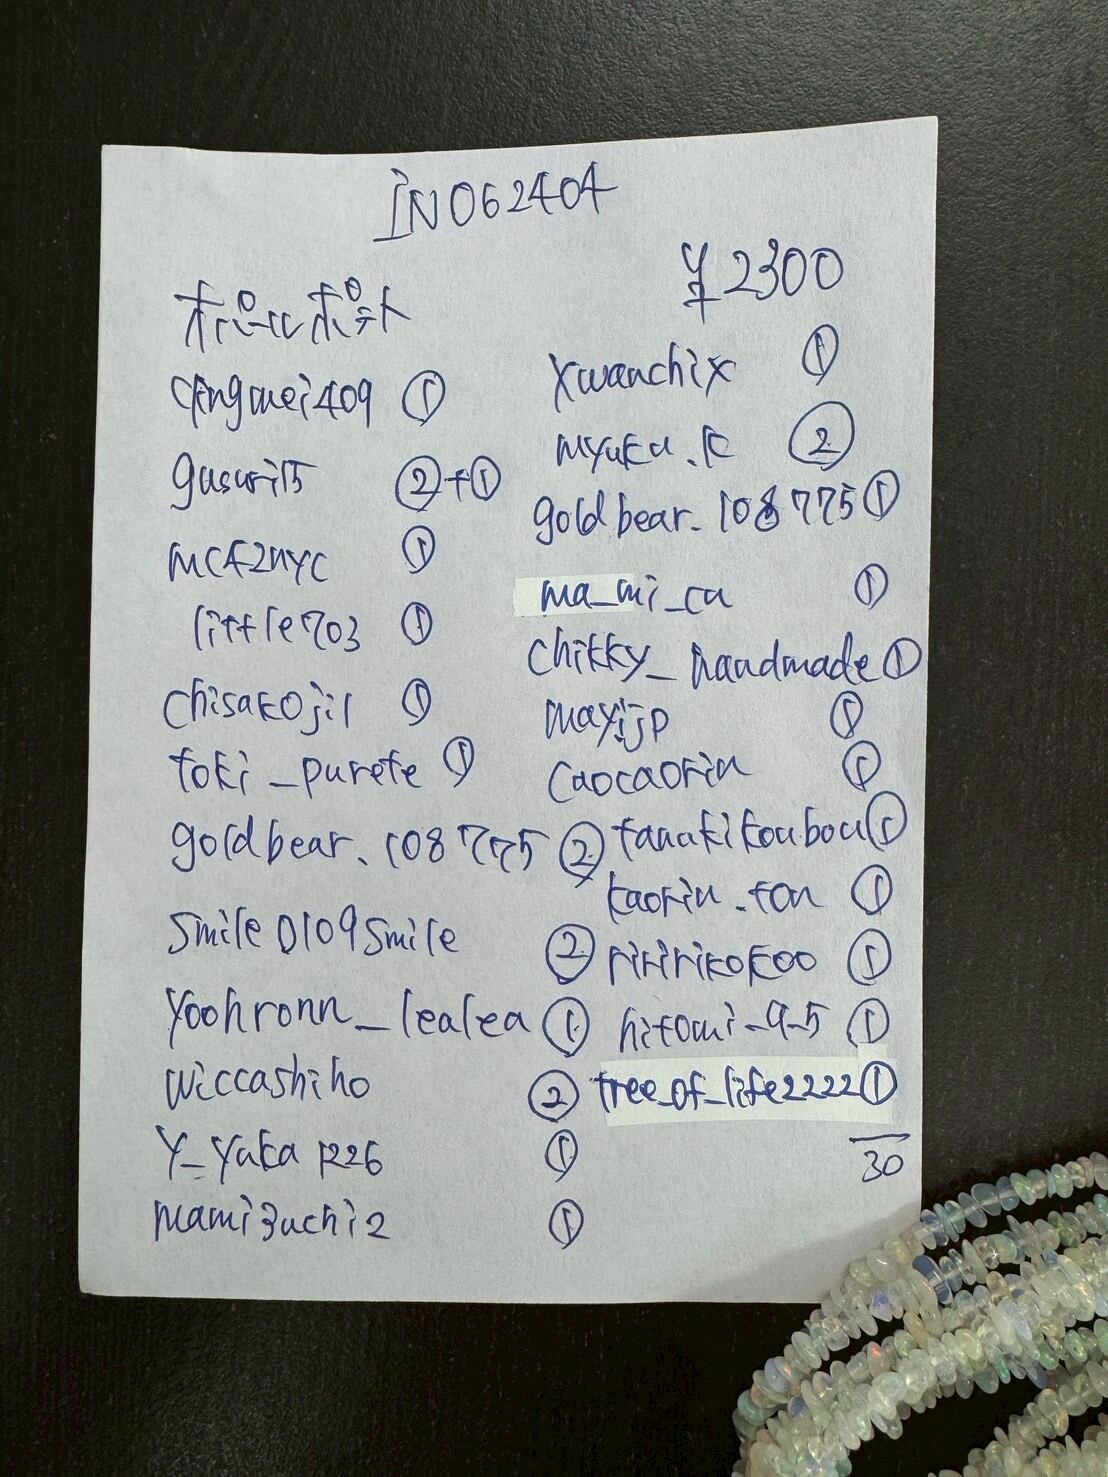 IN062404
¥2300
qingmei409 ①
gusuri15 ②+①
mc42nyc ①
little703 ①
chisakojil ①
toki_purete ①
goldbear.108775 ②
smile0109smile ②
yoohronn_lealea ①
wiccashiho ②
y_yuka1226 ①
mami3uchi2 ①
xwanchix ①
myuku.k ②
goldbear.108775 ①
ma_mi_ca ①
chikky_handmade ①
mayijp ①
caocaorin ①
tanukikoubou ①
kaorin.ton ①
riririkokoo ①
hitomi-9-5 ①
tree_of_life2222 ①
30